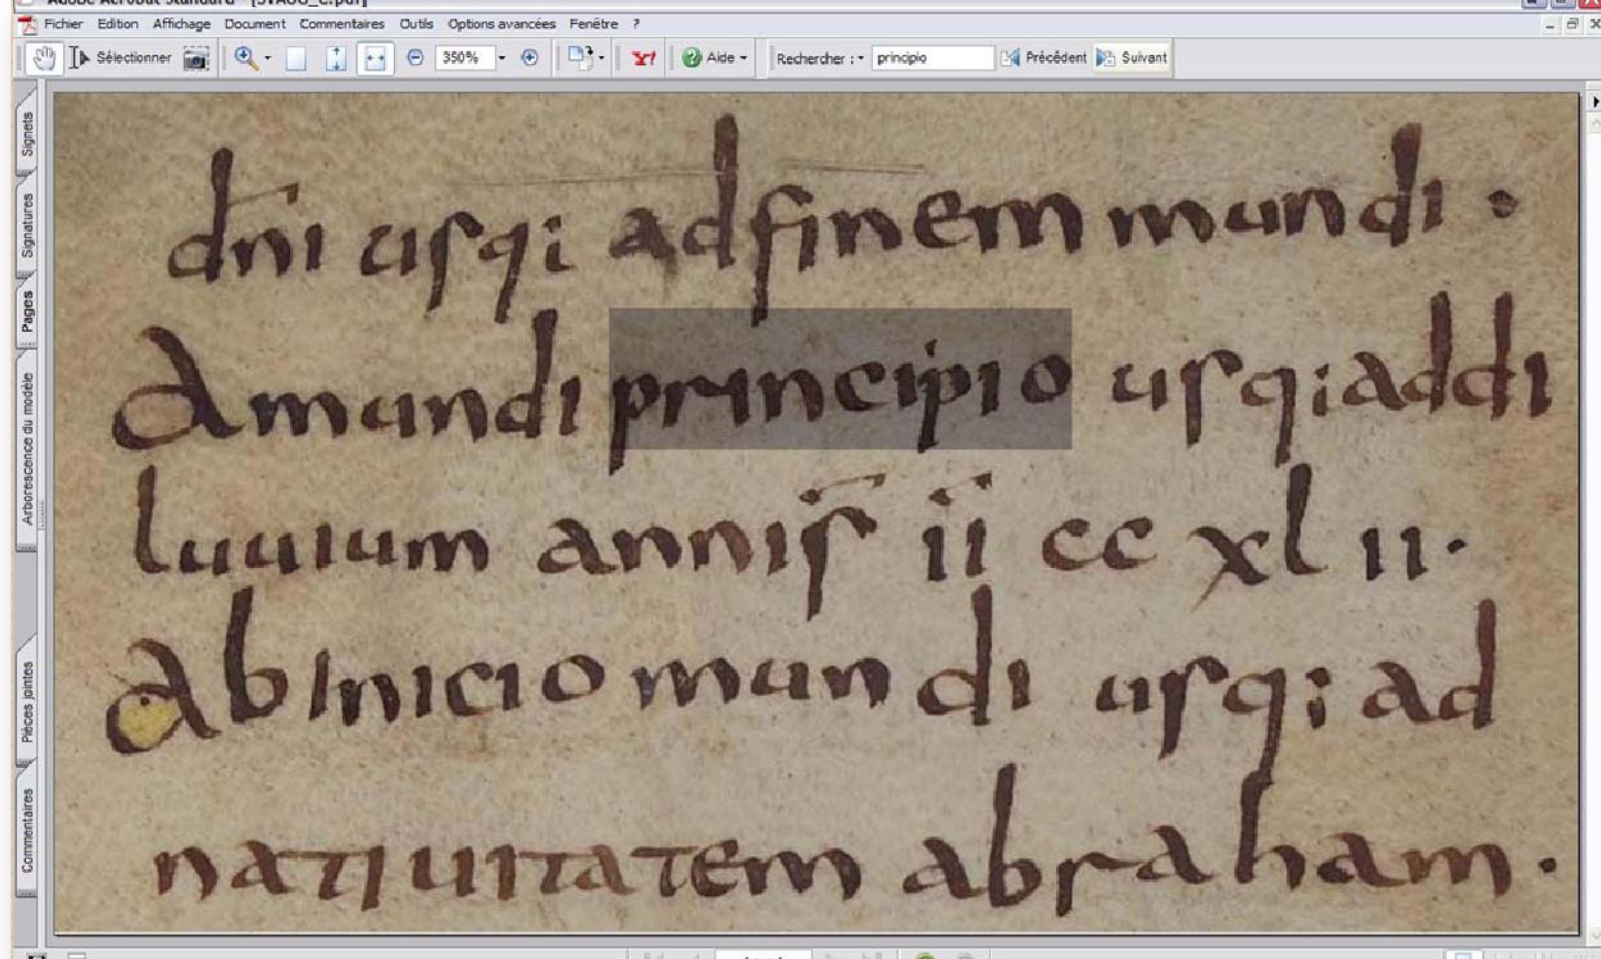 Adobe Acrobat Standard - [STAUG_C.pdf]
Fichier Edition Affichage Document Commentaires Outils Options avancées Fenêtre ?
Sélectionner 350% Y! Aide Rechercher : principio Précédent Suivant
Signets
Signatures
Pages
Arborescence du modèle
Pièces jointes
Commentaires
dñi usqi adfinem mundi ·
Amundi principio usqi addi
luuium annis īī cc xl ii·
Ab inicio mundi usqi ad
natiuitatem abraham·